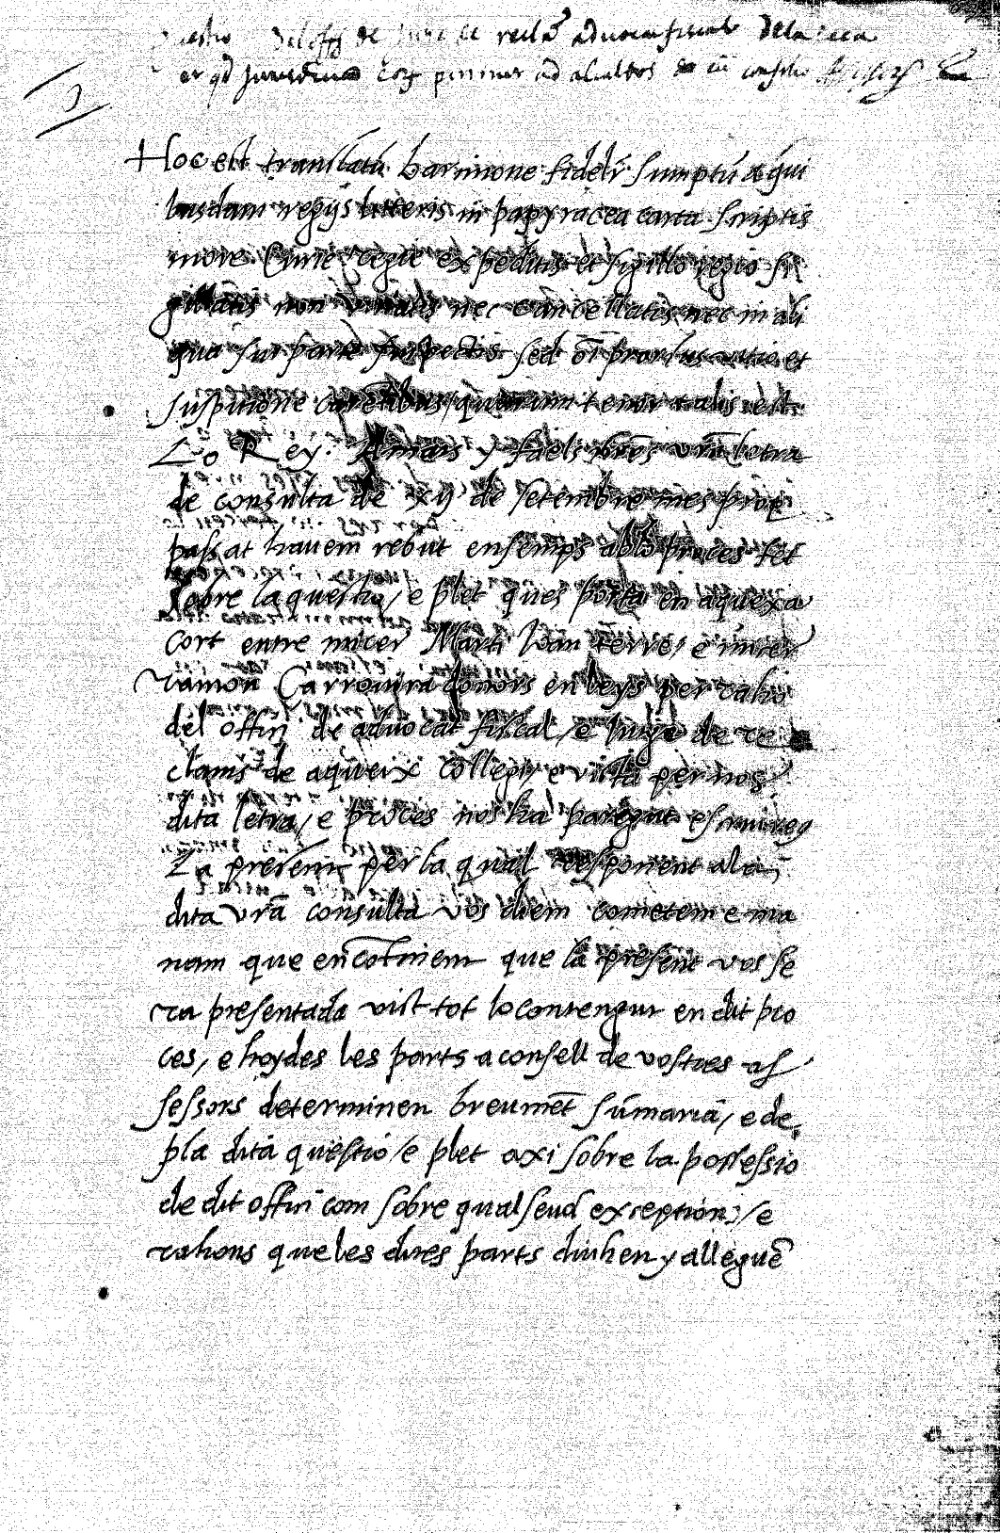 de reclã advocat fiscal dela seca
er qd Jurisdictio pertinet ad alcaldos cũ consilio
Hoc est translatũ barcinone fideliʳ sumptũ a qui
busdam regijs litteris in papyracea carta scriptis
more Curie regie expeditis et sigillo regio si
gillatis non vitiatis nec cancellatis nec in ali
qua sui parte suspectis sed oĩ prorsus vitio et
suspitione carẽtibus quarum tenor talis est
Lo Rey. Amats y faels ñros vrã letra
de consulta de xij de setembre mes prop
passat havem rebut ensemps ab lo proces fet
sobre la questio / e plet ques porta en aquexa
cort entre micer Marti Joan Ferre / e micer
Ramon Carrovira donors en leys per raho
del offici de advocat fiscal / e Jutje de re
clams de aqueix collegi / e vista per nos
dita letra / e proces nos ha paregut escriureus
La present per la qual responent ala
dita vrã consulta vos diem cometem e ma
nam que encõtinent que la present vos se
ra presentada vist tot lo contengut en dit pro
ces, e hoydes les parts a consell de vostres as
sessors determinen breumẽt sũmariã, e de
pla dita questio / e plet axi sobre la possessio
de dit offici com sobre qualsevol exceptions / e
rahons que les dites parts diuhen y alleguẽ